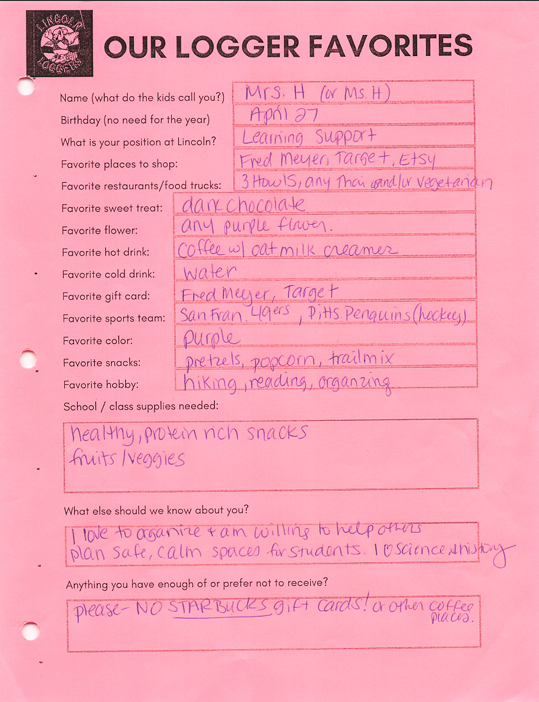 LINCOLN
LOGGERS
OUR LOGGER FAVORITES
Name (what do the kids call you?) Mrs. H (or Ms. H)
Birthday (no need for the year) April 27
What is your position at Lincoln? Learning Support
Favorite places to shop: Fred Meyer, Target, Etsy
Favorite restaurants/food trucks: 3 Howls, any Thai and/or vegetarian
Favorite sweet treat: dark chocolate
Favorite flower: any purple flower.
Favorite hot drink: Coffee w/ oatmilk creamer
Favorite cold drink: water
Favorite gift card: Fred Meyer, Target
Favorite sports team: San Fran. 49ers, Pitts Penguins (hockey)
Favorite color: purple
Favorite snacks: pretzels, popcorn, trailmix
Favorite hobby: hiking, reading, organzing
School / class supplies needed:
healthy, protein rich snacks
fruits/veggies
What else should we know about you?
I love to organize + am willing to help others
plan safe, calm spaces for students. I ♡ science & history
Anything you have enough of or prefer not to receive?
please - NO STARBUCKS gift cards! or other coffee
places.